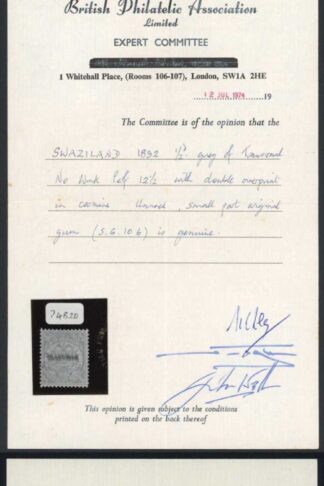 British Philatelic Association
Limited
EXPERT COMMITTEE
1 Whitehall Place, (Rooms 106-107), London, SW1A 2HE
12 JUL 1974 19
The Committee is of the opinion that the
SWAZILAND 1892 ½d grey of Transvaal
No Wmk Perf 12½ with double overprint
in carmine Unused, small part original
gum (S.G. 10 b) is genuine.
74820
This opinion is given subject to the conditions
printed on the back thereof